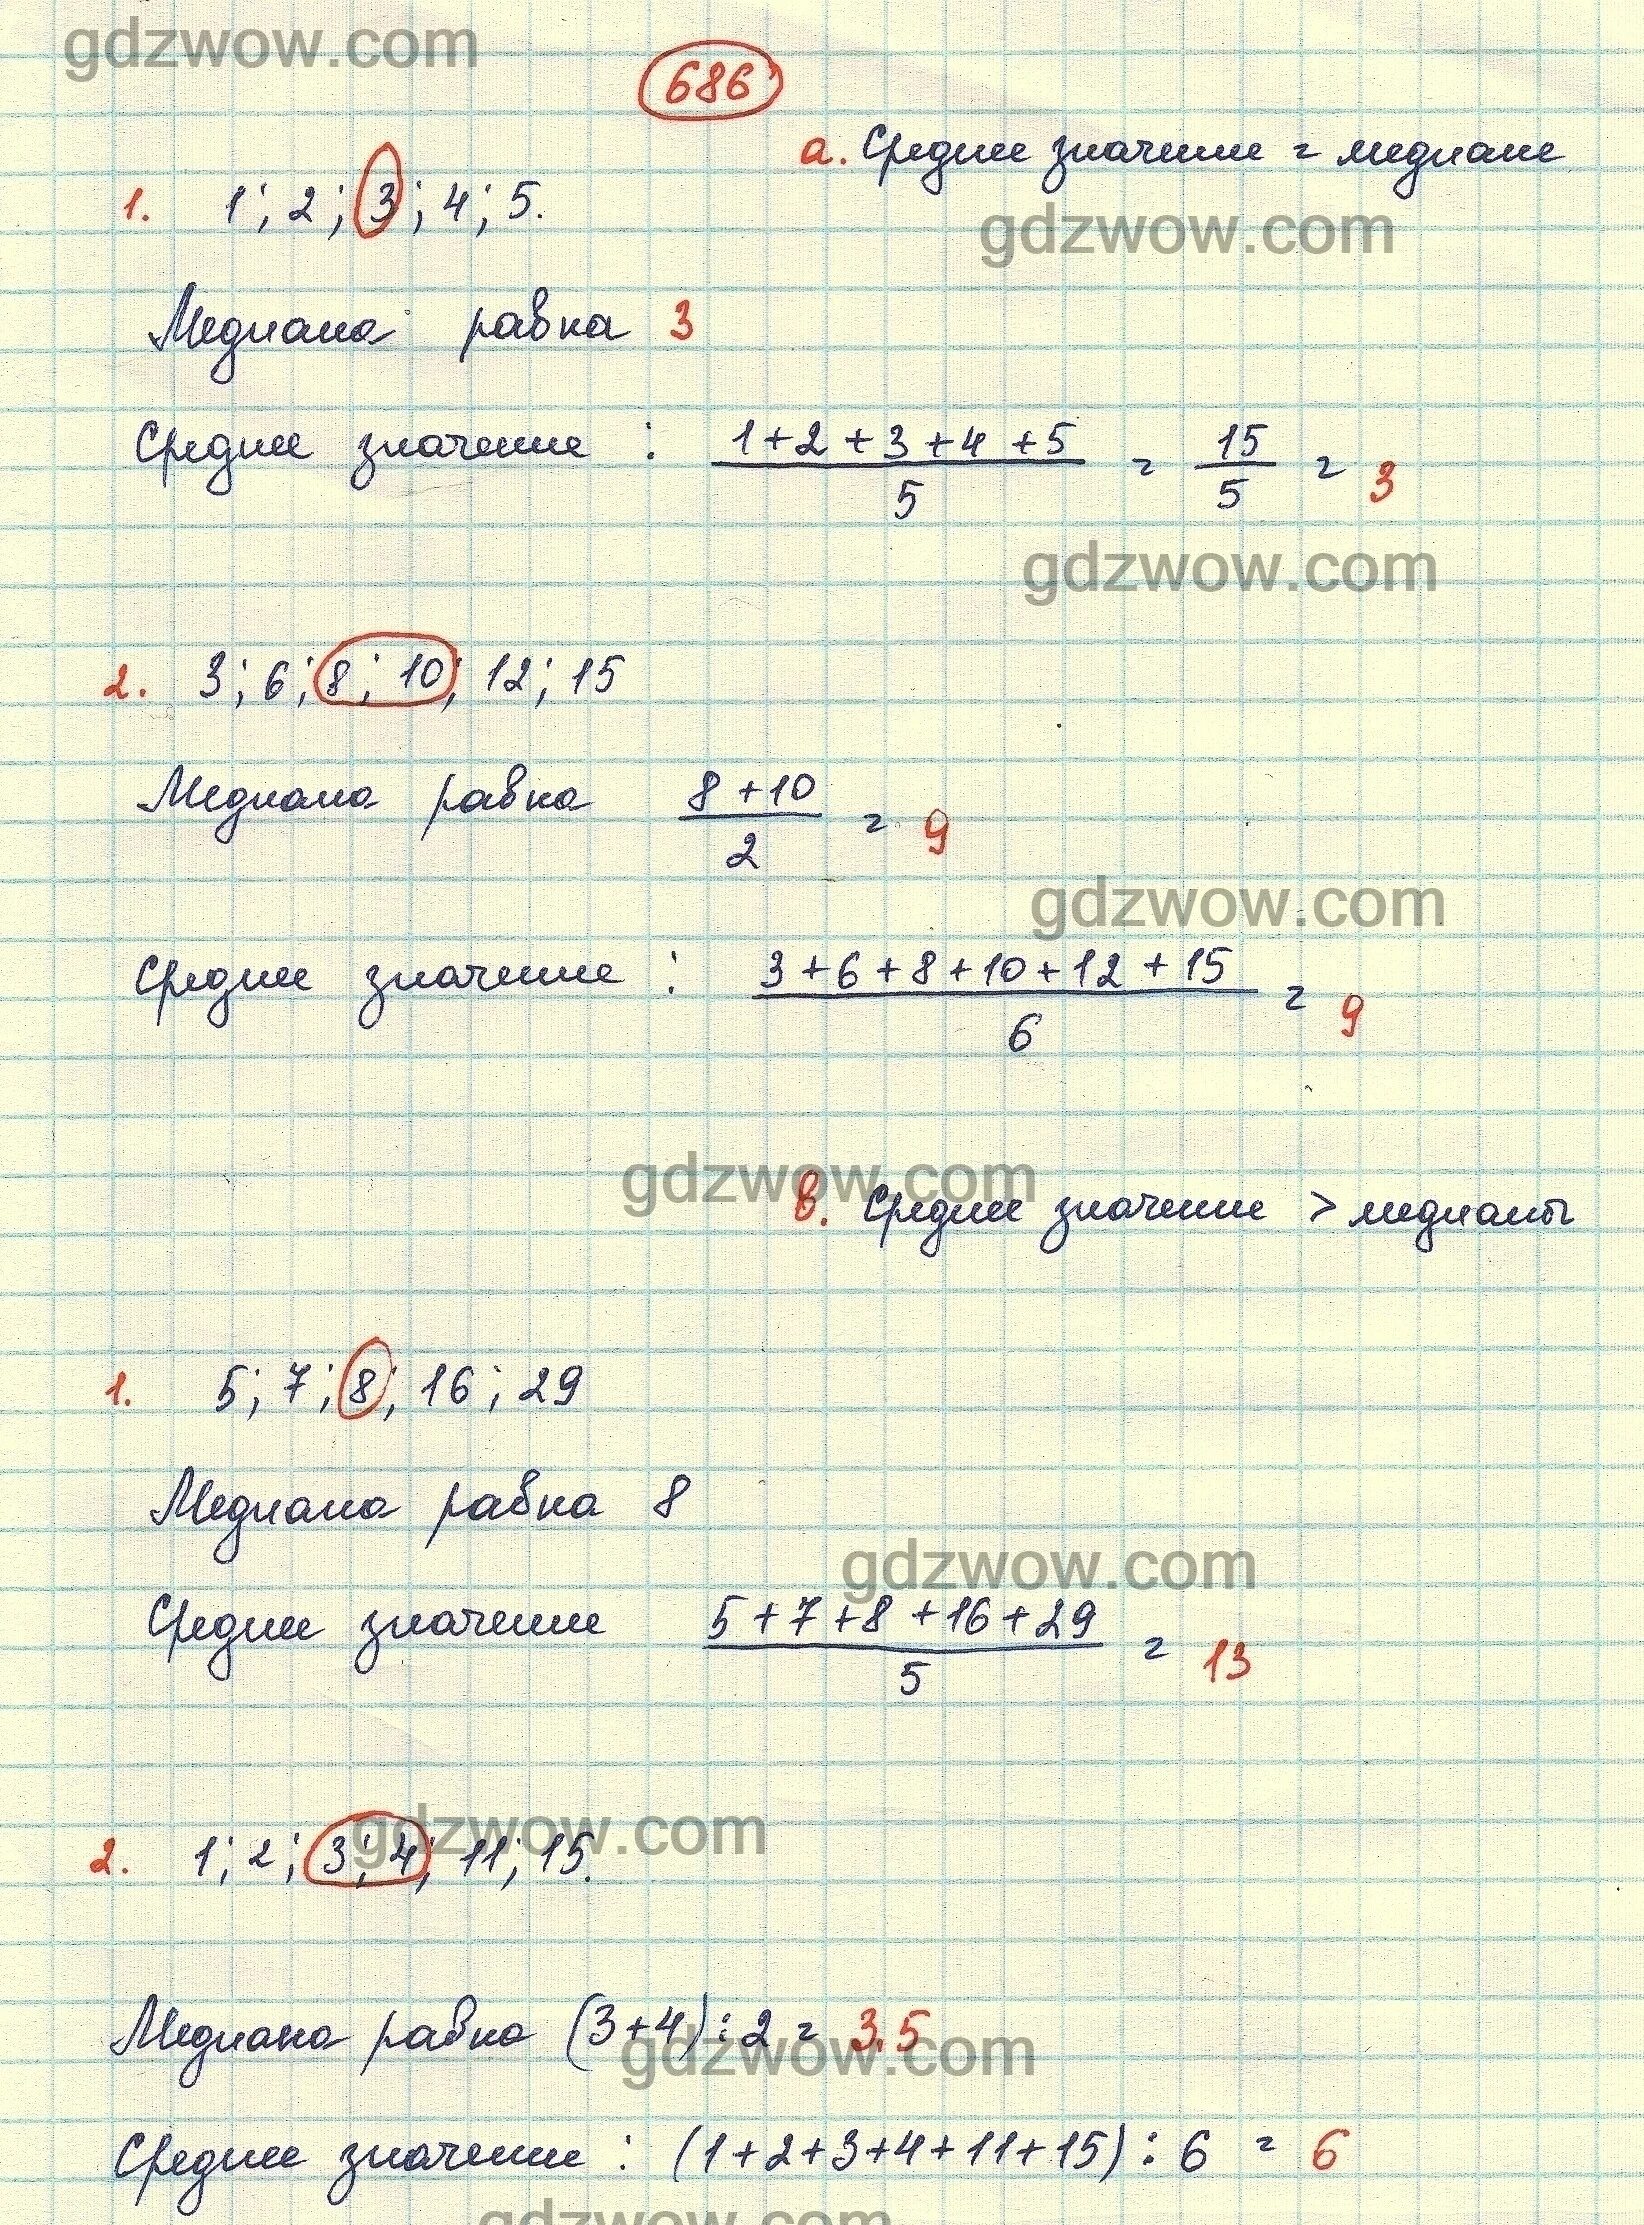 gdzwow.com
686
а. Среднее значение = медиане
1. 1; 2; 3; 4; 5.
gdzwow.com
Медиана равна 3
Среднее значение : 1+2+3+4+5 / 5 = 15 / 5 = 3
gdzwow.com
2. 3; 6; 8; 10; 12; 15
Медиана равна 8+10 / 2 = 9
gdzwow.com
Среднее значение : 3+6+8+10+12+15 / 6 = 9
gdzwow.com
в. Среднее значение > медианы
1. 5; 7; 8; 16; 29
Медиана равна 8
gdzwow.com
Среднее значение 5+7+8+16+29 / 5 = 13
gdzwow.com
2. 1; 2; 3; 4; 11; 15.
Медиана равна (3+4):2 = 3.5
gdzwow.com
Среднее значение : (1+2+3+4+11+15) : 6 = 6
gdzwow.com